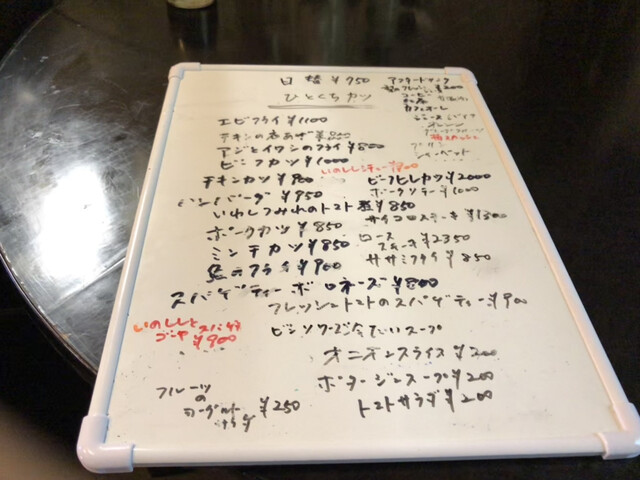 日替 ¥950
ひとくちカツ
アフタードリンク
¥200
コーヒー
紅茶
カフェオーレ
オレンジ
エビフライ ¥1100
チキンの唐あげ ¥800
アジとイワシのフライ ¥800
ビーフカツ ¥1000
いのししシチュー ¥900
チキンカツ ¥900
ビーフヒレカツ ¥2000
ハンバーグ ¥950
ポークソテー ¥1000
いわしつみれのトマト煮 ¥850
サイコロステーキ ¥1300
ポークカツ ¥850
ロース
ステーキ ¥2350
ミンチカツ ¥850
ササミフライ ¥850
フライ ¥900
スパゲティーボロネーズ ¥800
フレッシュトマトのスパゲティー ¥900
いのししと
ゴーヤ スパゲティ
¥900
ビシソワーズ冷たいスープ
オニオンスライス ¥200
ポタージュスープ ¥200
トマトサラダ ¥200
フルーツ
の
ヨーグルト
サラダ
¥250